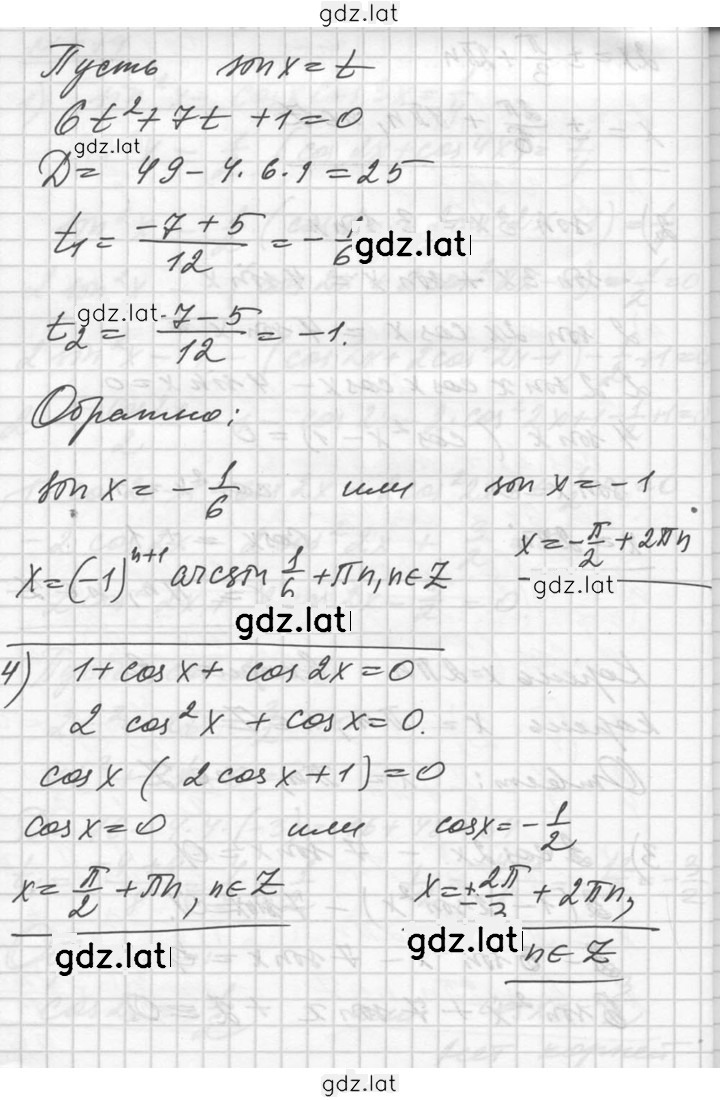 gdz.lat
Пусть sin x = t
6t² + 7t + 1 = 0
gdz.lat
D = 49 - 4·6·1 = 25
t₁ = (-7 + 5)/12 = -1/6
gdz.lat
gdz.lat
t₂ = (-7 - 5)/12 = -1.
Обратно:
sin x = -1/6 или sin x = -1
x = -π/2 + 2πn
x = (-1)ⁿ⁺¹ arcsin 1/6 + πn, n ∈ Z
gdz.lat
gdz.lat
4) 1 + cos x + cos 2x = 0
2 cos²x + cos x = 0.
cos x (2 cos x + 1) = 0
cos x = 0 или cos x = -1/2
x = π/2 + πn, n ∈ Z x = ± 2π/3 + 2πn,
gdz.lat gdz.lat n ∈ Z
gdz.lat